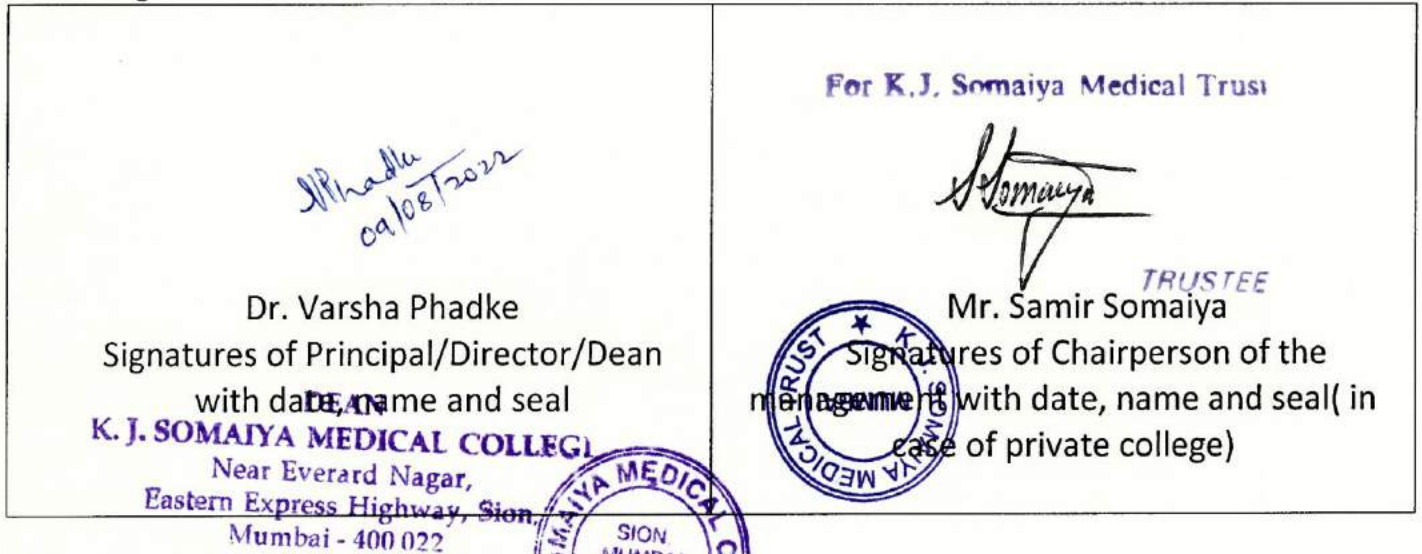 VPhadke
09/08/2022
Dr. Varsha Phadke
Signatures of Principal/Director/Dean
with date, name and seal
DEAN
K. J. SOMAIYA MEDICAL COLLEGE
Near Everard Nagar,
Eastern Express Highway, Sion,
Mumbai - 400 022
MAIYA MEDICAL C
SION
MUMBAI
For K.J. Somaiya Medical Trust
SSomaiya
TRUSTEE
Mr. Samir Somaiya
Signatures of Chairperson of the
management with date, name and seal( in
case of private college)
K. J. SOMAIYA MEDICAL TRUST